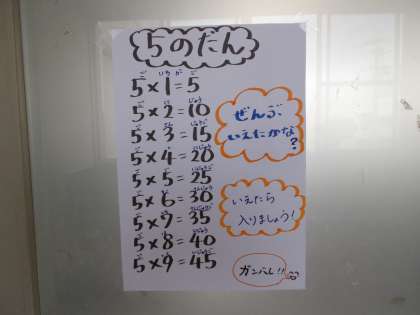 5のだん
5×1=5
5×2=10
5×3=15
5×4=20
5×5=25
5×6=30
5×7=35
5×8=40
5×9=45
ぜんぶ
いえたかな?
いえたら
入りましょう!
ガンバレ!!